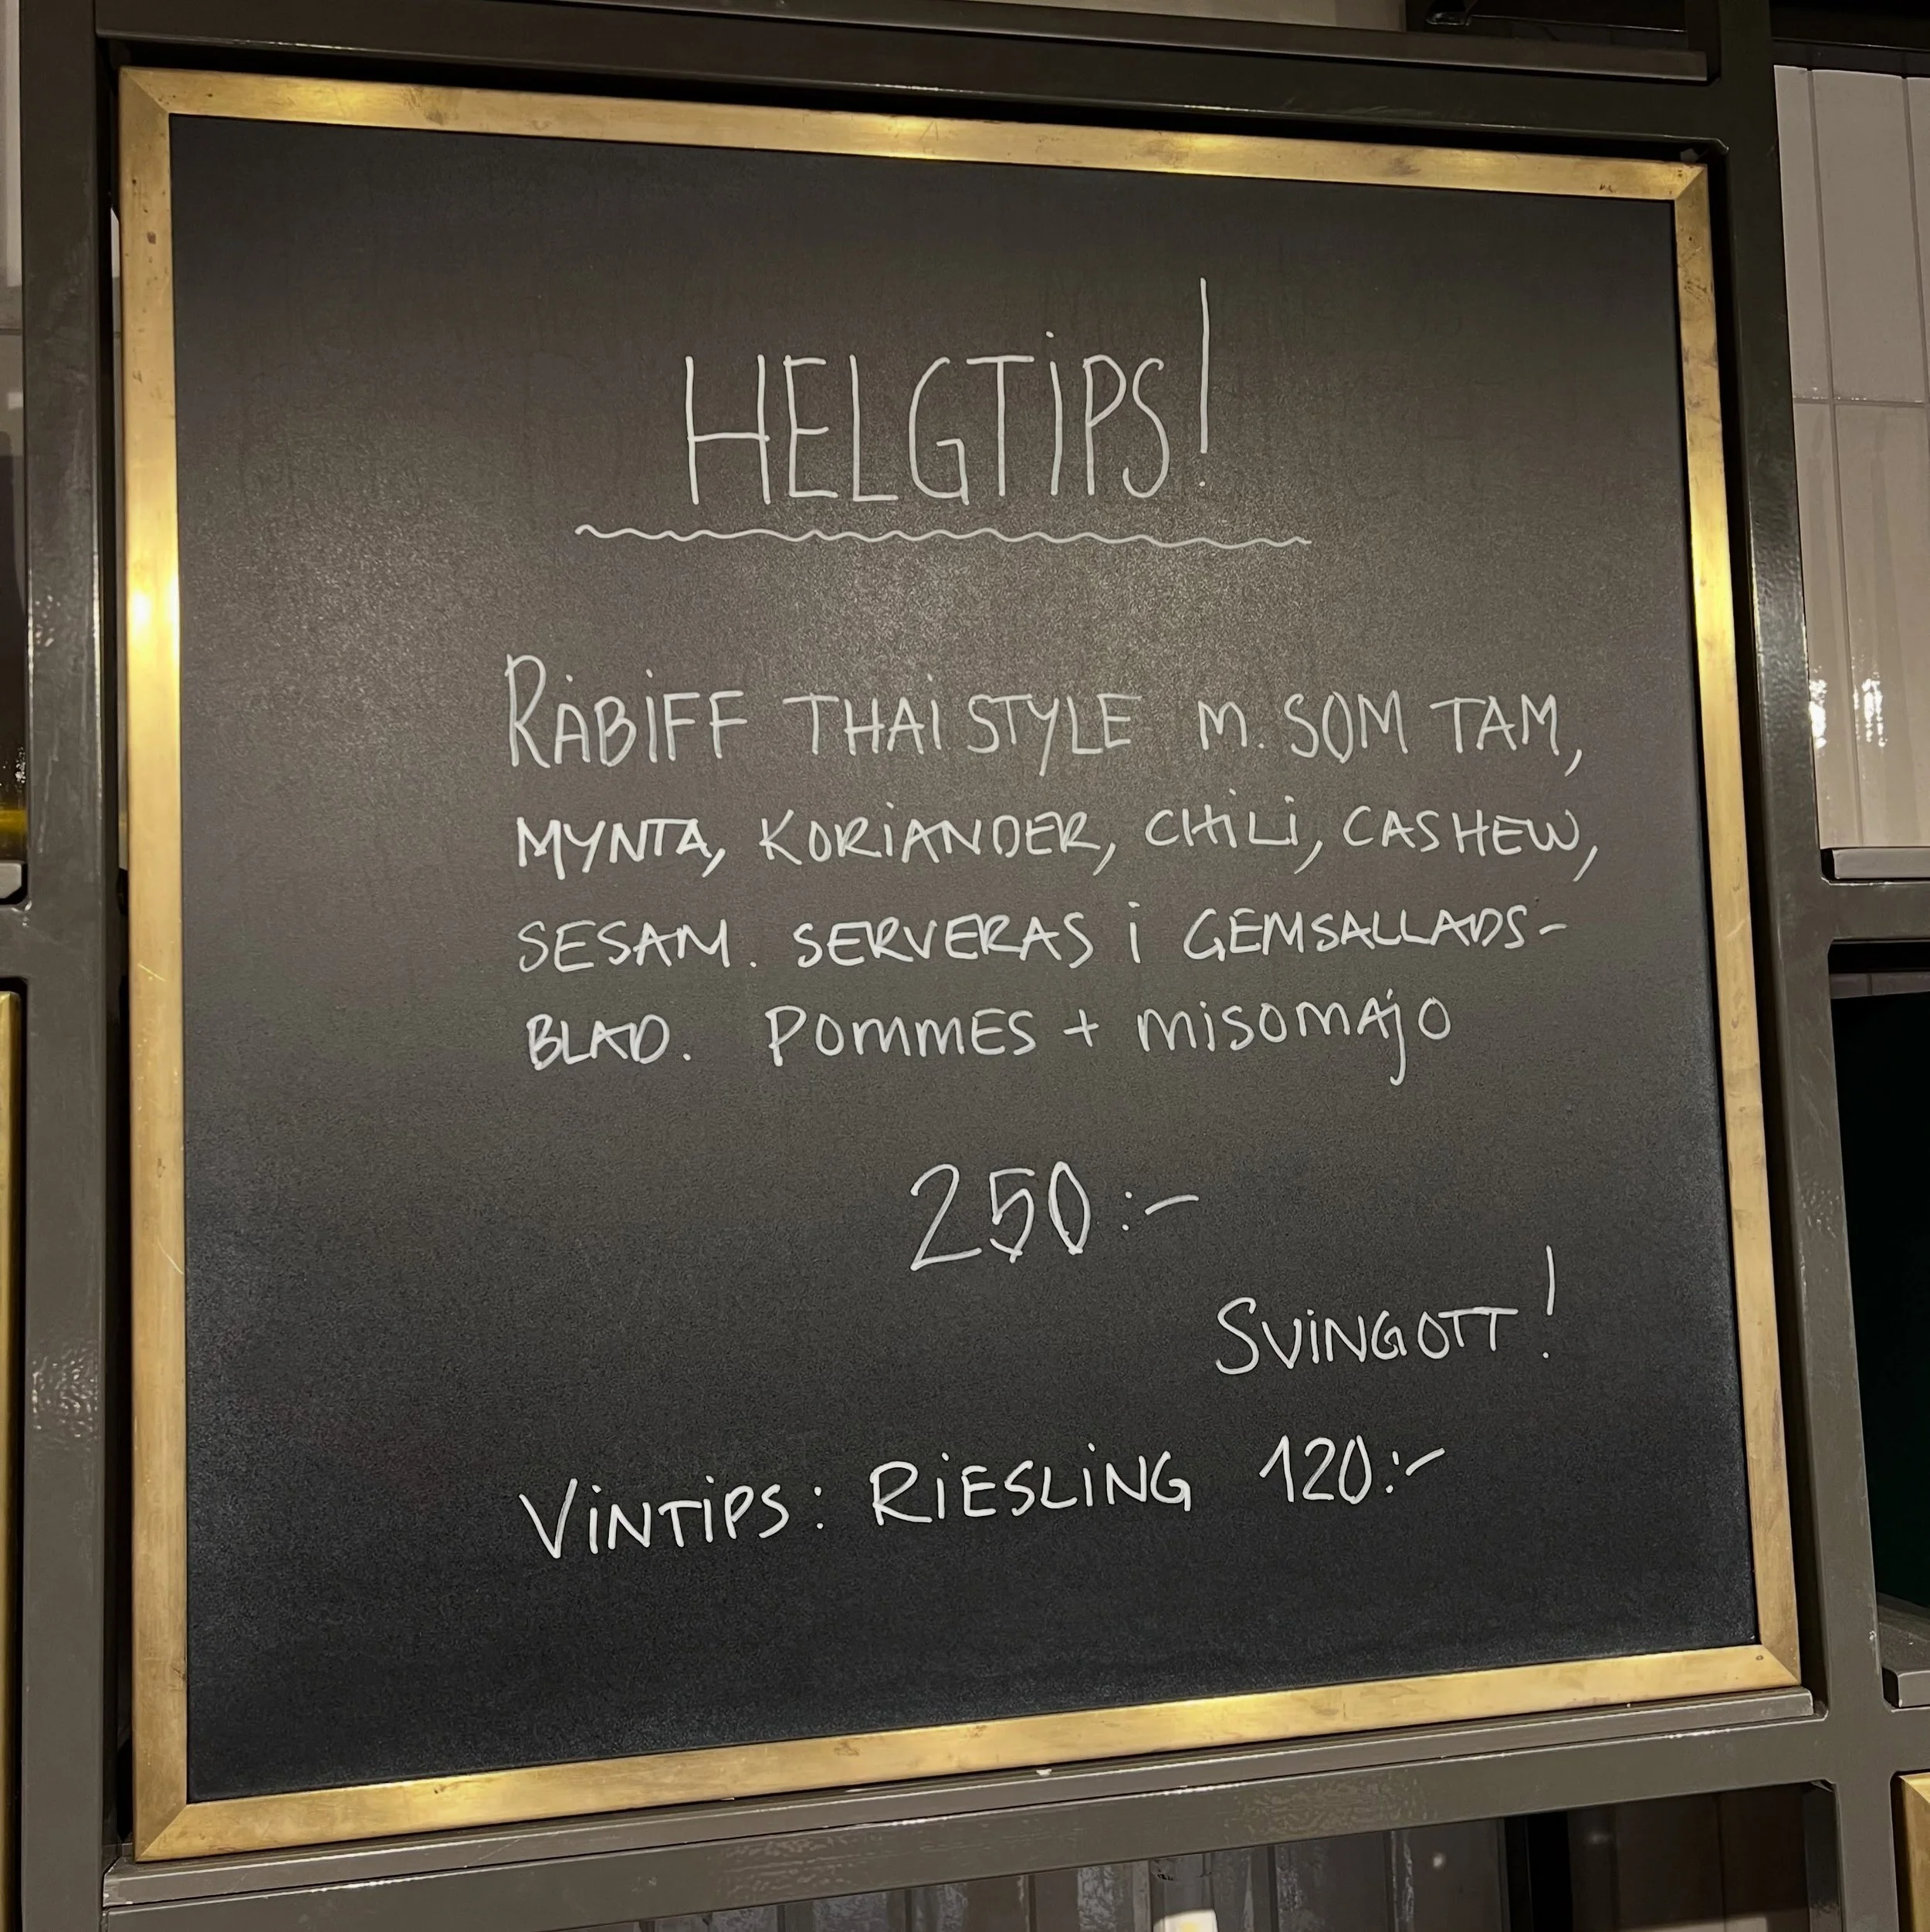 HELGTIPS!
RÅBIFF THAISTYLE M. SOM TAM,
MYNTA, KORIANDER, CHILI, CASHEW,
SESAM. SERVERAS I GEMSALLADS-
BLAD. POMMES + MISOMAJO
250:-
SVINGOTT!
VINTIPS: RIESLING 120:-